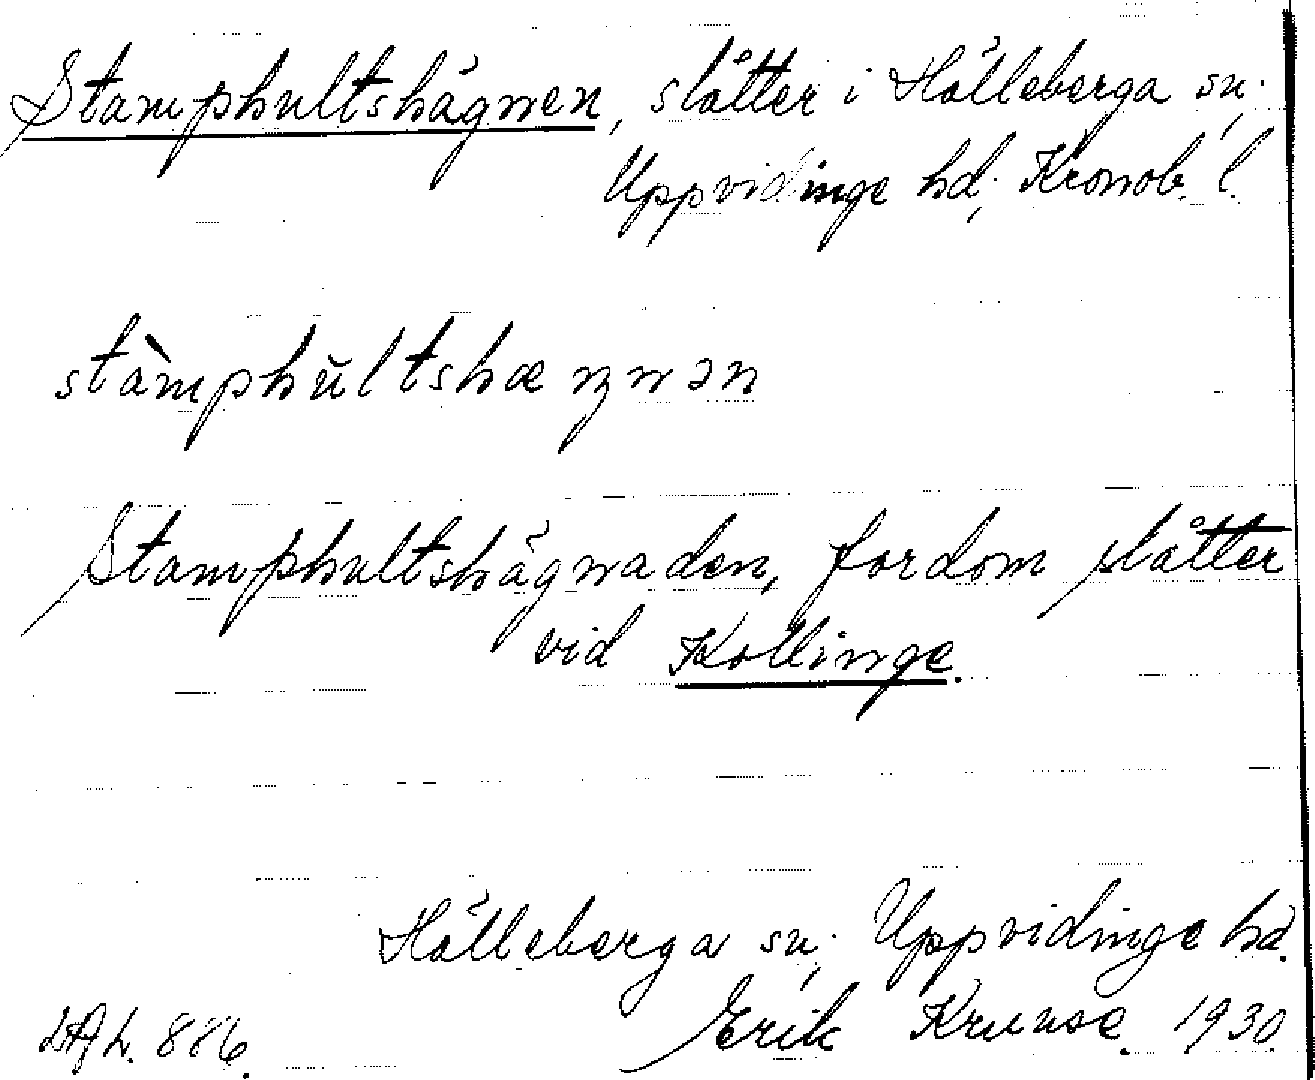 Stamphultshägnen, slåtter i Hälleberga sn;
Uppvidinge hd; Kronob. l.
stàmphŭltshæŋnən
Stamphultshägnaden, fordom slåtter
vid Kollinge.
Hälleberga sn; Uppvidinge hd.
Erik Kruuse. 1930.
LAL. 886.